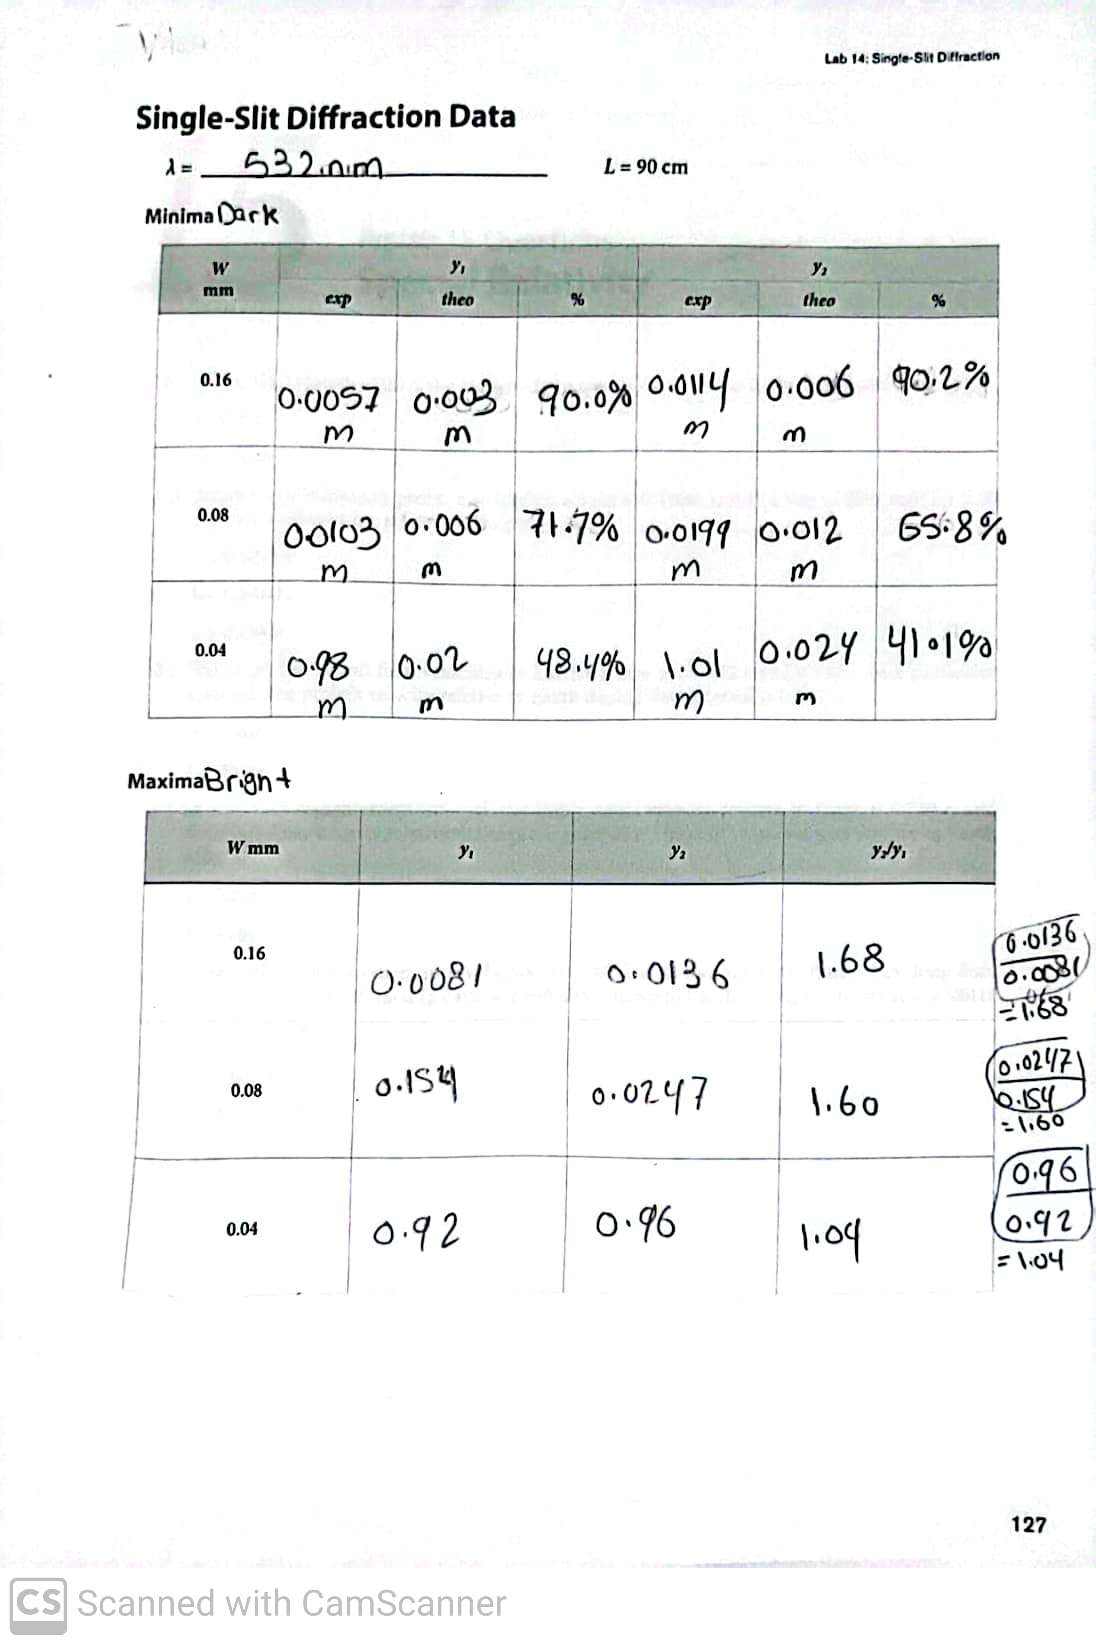 Lab 14: Single-Slit Diffraction
Single-Slit Diffraction Data
λ = 532 nm L = 90 cm
Minima Dark
W mm y₁ y₂
exp theo % exp theo %
0.16 0.0057 m 0.003 m 90.0% 0.0114 m 0.006 m 90.2%
0.08 0.0103 m 0.006 m 71.7% 0.0199 m 0.012 m 65.8%
0.04 0.98 m 0.02 m 48.4% 1.01 m 0.024 m 41.1%
Maxima Bright
W mm y₁ y₂ y₂/y₁
0.16 0.0081 0.0136 1.68
0.0136
0.0081
= 1.68
0.08 0.154 0.0247 1.60
0.0247
0.154
= 1.60
0.04 0.92 0.96 1.04
0.96
0.92
= 1.04
127
CS Scanned with CamScanner